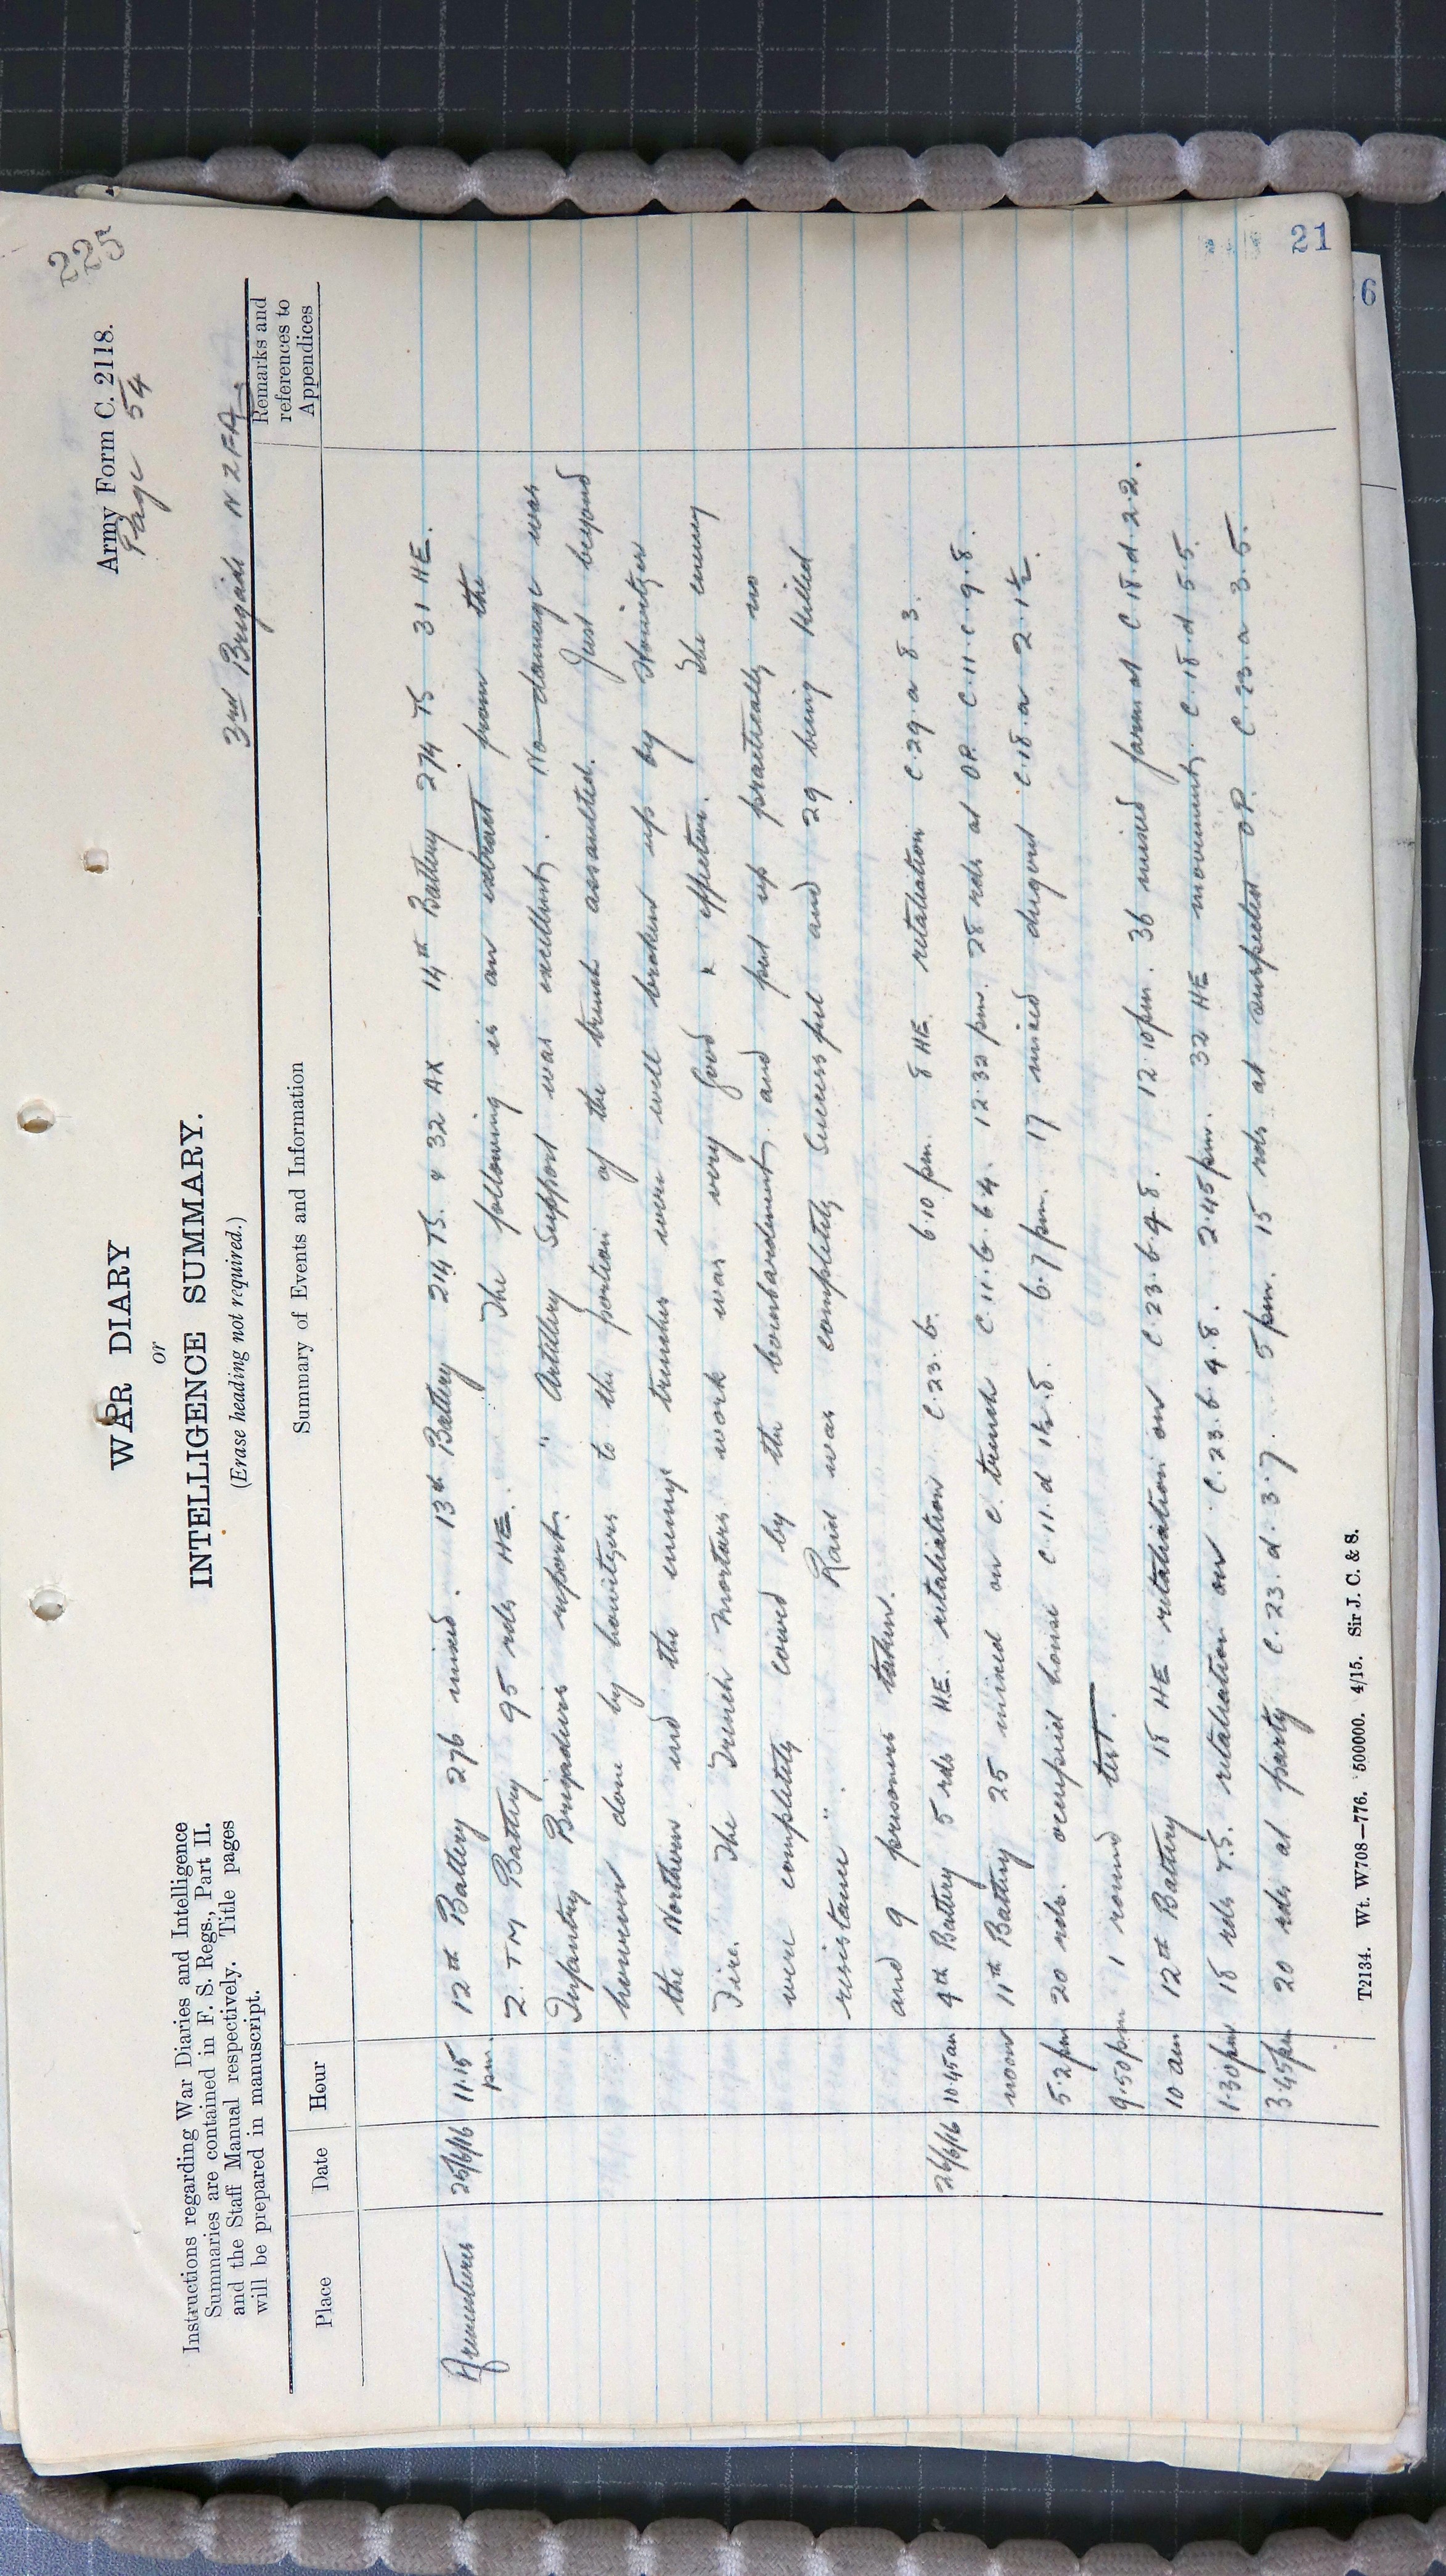 225
Army Form C. 2118.
Page 54
WAR DIARY
or
INTELLIGENCE SUMMARY.
(Erase heading not required.)
3rd Brigade NZFA
Instructions regarding War Diaries and Intelligence
Summaries are contained in F. S. Regs., Part II.
and the Staff Manual respectively. Title pages
will be prepared in manuscript.
Place Date Hour Summary of Events and Information Remarks and references to Appendices
Armentieres 25/6/16 11.15 pm. 12th Battery 276 mixed. 13th Battery 214 TS. & 32 AX 14th Battery 274 TS 31 HE.
2. TM Battery 95 rds HE. The following is an extract from the
Infantry Brigadiers report. " Artillery Support was excellent. No damage was
however done by howitzers to the portion of the trench assaulted. Just beyond
the Northern end the enemys trenches were well broken up by Howitzer
Fire. The Trench Mortars work was very good & effective. The enemy
were completely cowed by the bombardment and put up practically no
resistance ". Raid was completely Successful and 29 being killed
and 9 prisoners taken.
26/6/16 10.45am 4th Battery 5 rds H.E. retaliation C.23.b. 6.10 pm. 8 HE. retaliation C.29.a 8 3.
noon 11th Battery 25 mixed on C. trench C.11.b.6.4. 12.32 pm. 28 rds at OP. C.11.c.9.8.
5.2pm 20 rds. occupied house C.11.d 1½.8. 6.7pm. 17 mixed dugout C.18.a 2.1½.
9.50pm 1 round test.
10 am 12th Battery 18 HE retaliation on C.23.b.4.8. 12.10pm. 36 mixed farm at C.18.d.2.2.
1.30pm 18 rds T.S. retaliation on C.23.b.4.8. 2.45pm. 32 HE movement C.18.d 5.5.
3.45pm 20 rds at party C.23.d.3.7. 5pm. 15 rds at suspected OP. C.23.a 3.5.
T2134. Wt. W708—776. 500000. 4/15. Sir J. C. & S.
21
6